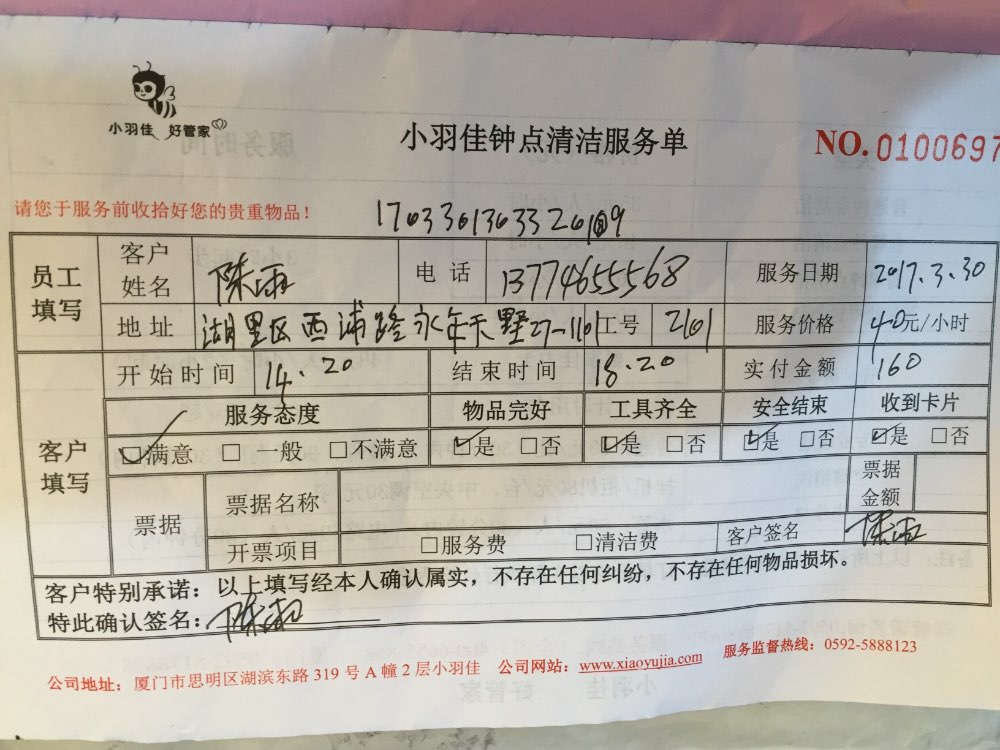 小羽佳 好管家
小羽佳钟点清洁服务单
NO.0100697
请您于服务前收拾好您的贵重物品！
员工填写 客户姓名 陈雨 电话 13774655568 服务日期 2017.3.30
地址 湖里区西浦路永年天墅27-1101 工号 2101 服务价格 40元/小时
客户填写 开始时间 14.20 结束时间 18.20 实付金额 160
服务态度 物品完好 工具齐全 安全结束 收到卡片
☑满意 □一般 □不满意 ☑是 □否 ☑是 □否 ☑是 □否 ☑是 □否
票据 票据名称 票据金额
开票项目 □服务费 □清洁费 客户签名 陈雨
客户特别承诺：以上填写经本人确认属实，不存在任何纠纷，不存在任何物品损坏。
特此确认签名：陈雨
服务监督热线：0592-5888123
公司地址：厦门市思明区湖滨东路 319 号 A 幢 2 层小羽佳 公司网站：www.xiaoyujia.com